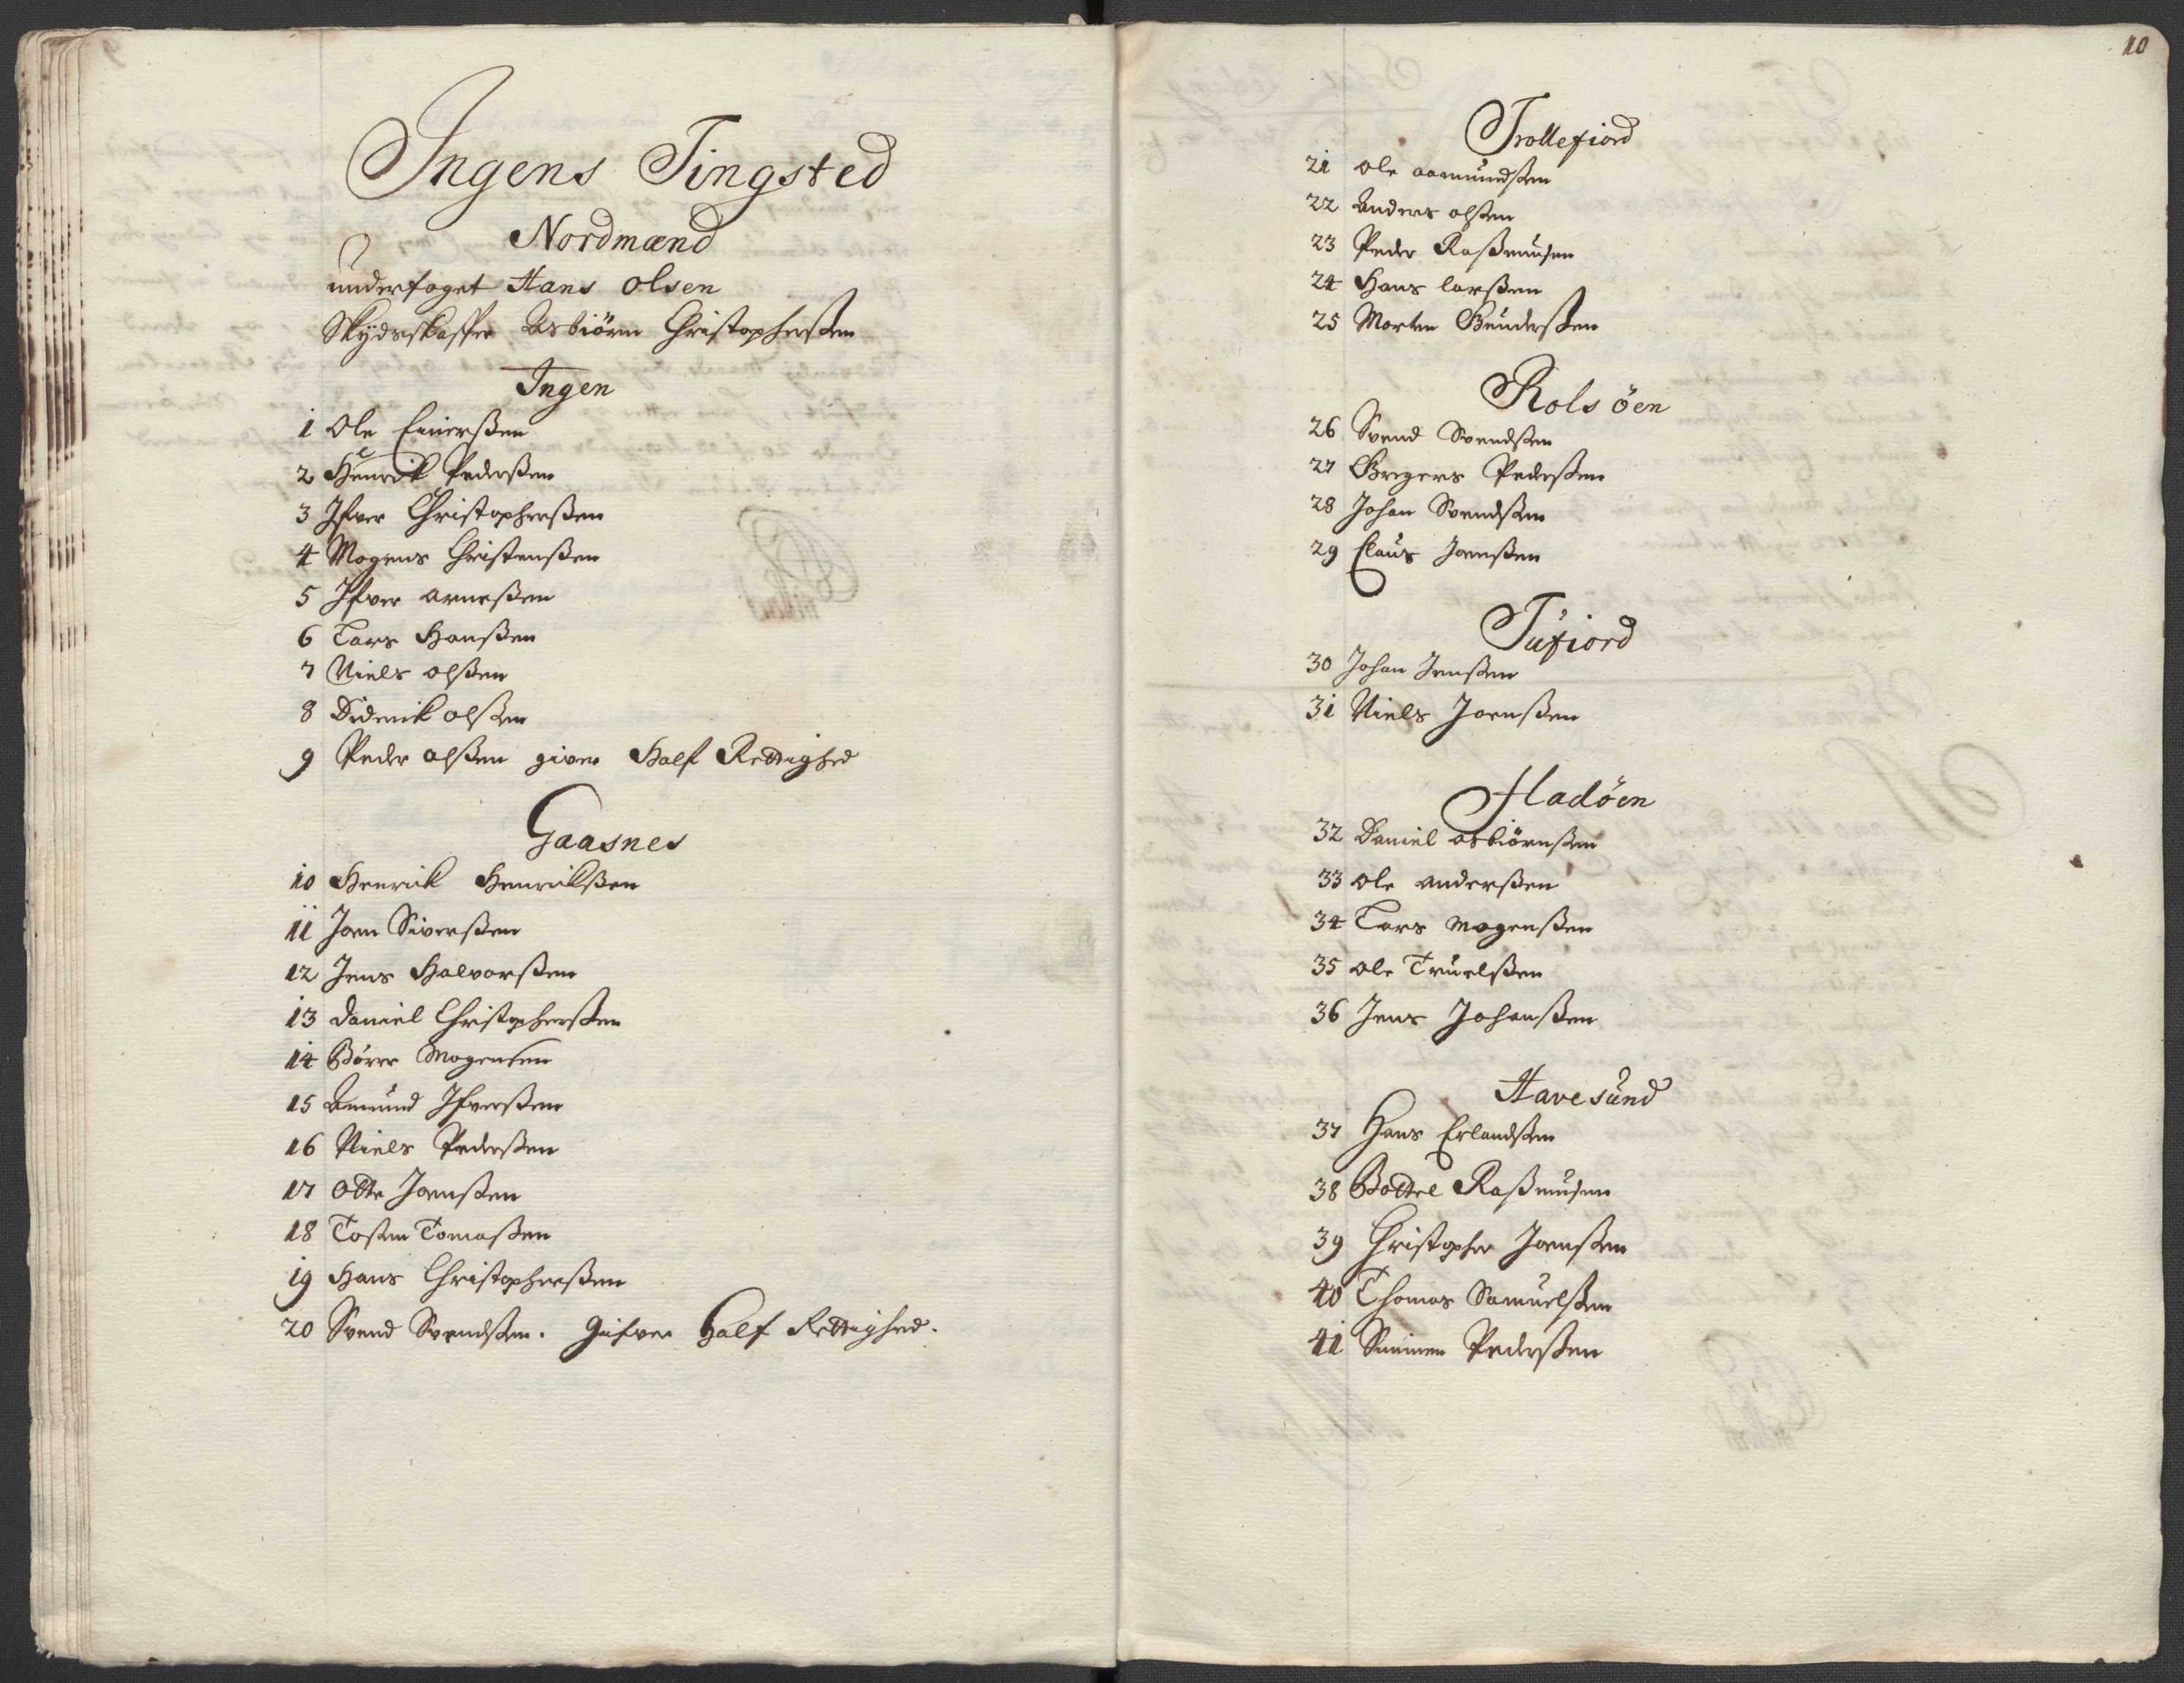 Ingens Tingsted
Nordmænd
underfoget Hans Olsen
Skydsskaffer Asbiørn Christophersen
Ingen
1 Ole Einerßen
2 Henrik Pederßen
3 Ifver Christopherßen
4 Mogens Christenßen
5 Ifver Arneßen
6 Lars Hanßen
7 Niels olßen
8 Diderik olßen
9 Peder olßen giver Half Rettighed
Gaasnes
10 Henrick Henrickßen
11 Joen Siverßen
12 Jens Halvorßen
13 Daniel Christopherßen
14 Børre Mogensen
15 Amund Ifverßen
16 Niels Pederßen
17 Otte Joenßen
18 Tosten Tomaßen
19 Hans Christopherßen
20 Svend Svendßen. Gifver Half Rettighed.
10
Trollefiord
21 Ole aamundßen
22 Anders olßen
23 Peder Raßmusen
24 Hans larßen
25 Morten Gunderßen
Rolsöen
26 Svend Svendßen
27 Gregers Pederßen
28 Johan Svendßen
29 Claus Joenßen
Tufiord
30 Johan Jenßen
31 Niels Joenßen
Hadöen
32 Daniel asbiørnßen
33 Ole anderßen
34 Lars Mogenßen
35 Ole Truelßen
36 Jens Johanßen
Havesund
37 Hans Erlandßen
38 Bottel Raßmusen
39 Christopher Joenßen
40 Thomas Samuelßen
41 Simmen Pederßen